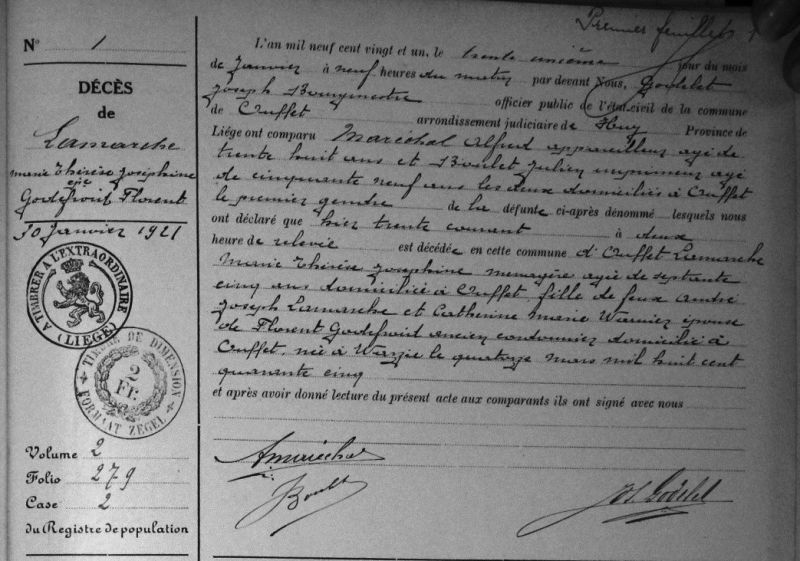 Premier feuillet
N° 1
DÉCÈS
de
Lamarche
Marie Thérèse Joséphine
épse
Godefroid Florent
30 Janvier 1921
A TIMBRER A L'EXTRAORDINAIRE
(LIÉGE)
TIMBRE DE DIMENSION
2
FR.
FORMAAT ZEGEL
Volume 2
Folio 279
Case 2
du Registre de population
L'an mil neuf cent vingt et un, le trente unième jour du mois
de Janvier à neuf heures du matin par devant Nous, Goblet
Joseph Bourgmestre officier public de l'état civil de la commune
de Ouffet arrondissement judiciaire de Huy Province de
Liége ont comparu Maréchal Alfred appareilleur agé de
trente huit ans et Boulet Julien imprimeur agé
de cinquante neuf ans les deux domiciliés à Ouffet
le premier gendre de la défunte ci-après dénommé lesquels nous
ont déclaré que hier trente courant à deux
heure de relevée est décédée en cette commune d'Ouffet Lamarche
Marie Thérèse Joséphine menagère agée de septante
cinq ans domiciliée à Ouffet, fille de feux André
Joseph Lamarche et Catherine Marie Warnier épouse
de Florent Godefroid ancien cordonnier domicilié à
Ouffet, née à Warzée le quatorze mars mil huit cent
quarante cinq
et après avoir donné lecture du présent acte aux comparants ils ont signé avec nous
A Maréchal
J Boulet